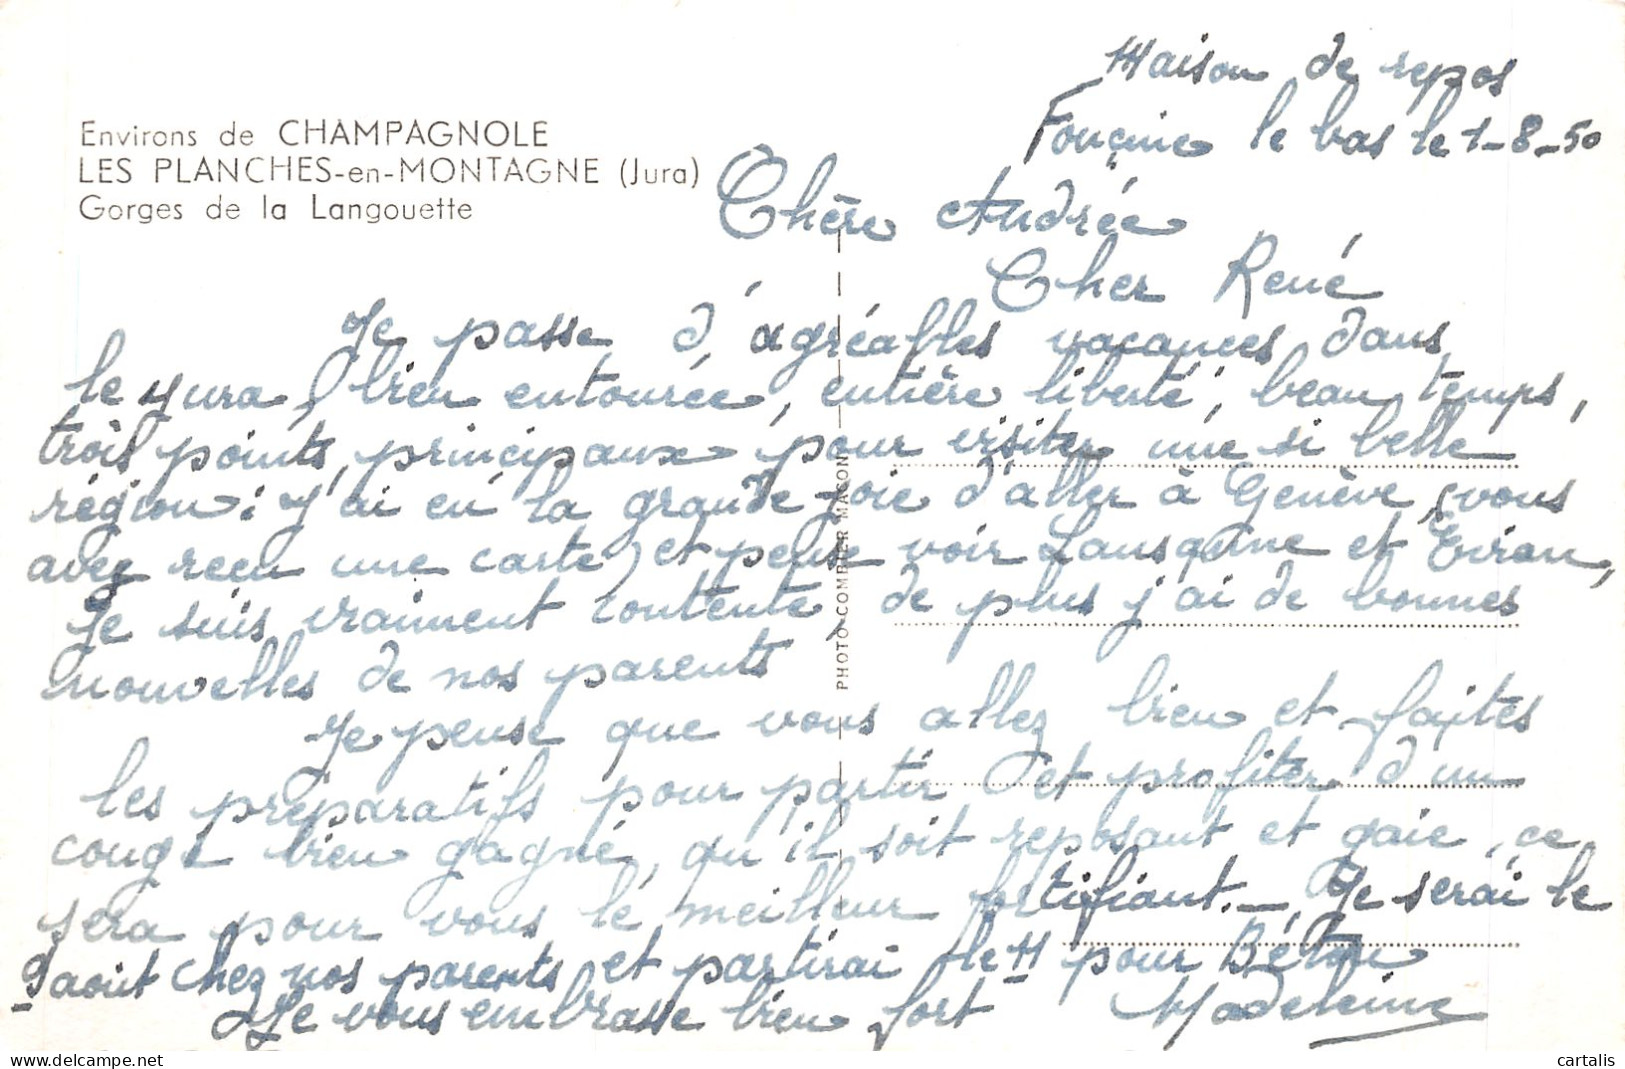 Environs de CHAMPAGNOLE
LES PLANCHES-en-MONTAGNE (Jura)
Gorges de la Langouette
Maison de repos
Fonçine le bas le 1-8-50
Chère Andrée
Cher René
Je passe d'agréables vacances dans
le Jura, bien entourée, entière liberté, beau temps,
trois points principaux pour visiter une si belle
région : J'ai eu la grande joie d'aller à Genève (vous
avez reçu une carte) et pense voir Lausanne et Evian,
Je suis vraiment contente de plus j'ai de bonnes
nouvelles de nos parents
Je pense que vous allez bien et faites
les préparatifs pour partir et profiter d'un
congé bien gagné, qu'il soit reposant et gaie, ce
sera pour vous le meilleur fortifiant. - Je serai le
9 aout chez nos parents et partirai le 11 pour
Je vous embrasse bien fort Madeleine
PHOTO COMBIER MACON
cartalis